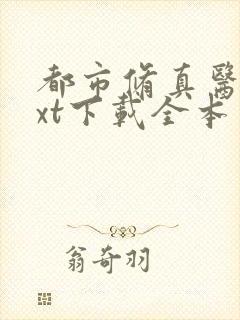 都市脩真醫
xt下載全本
翁奇羽